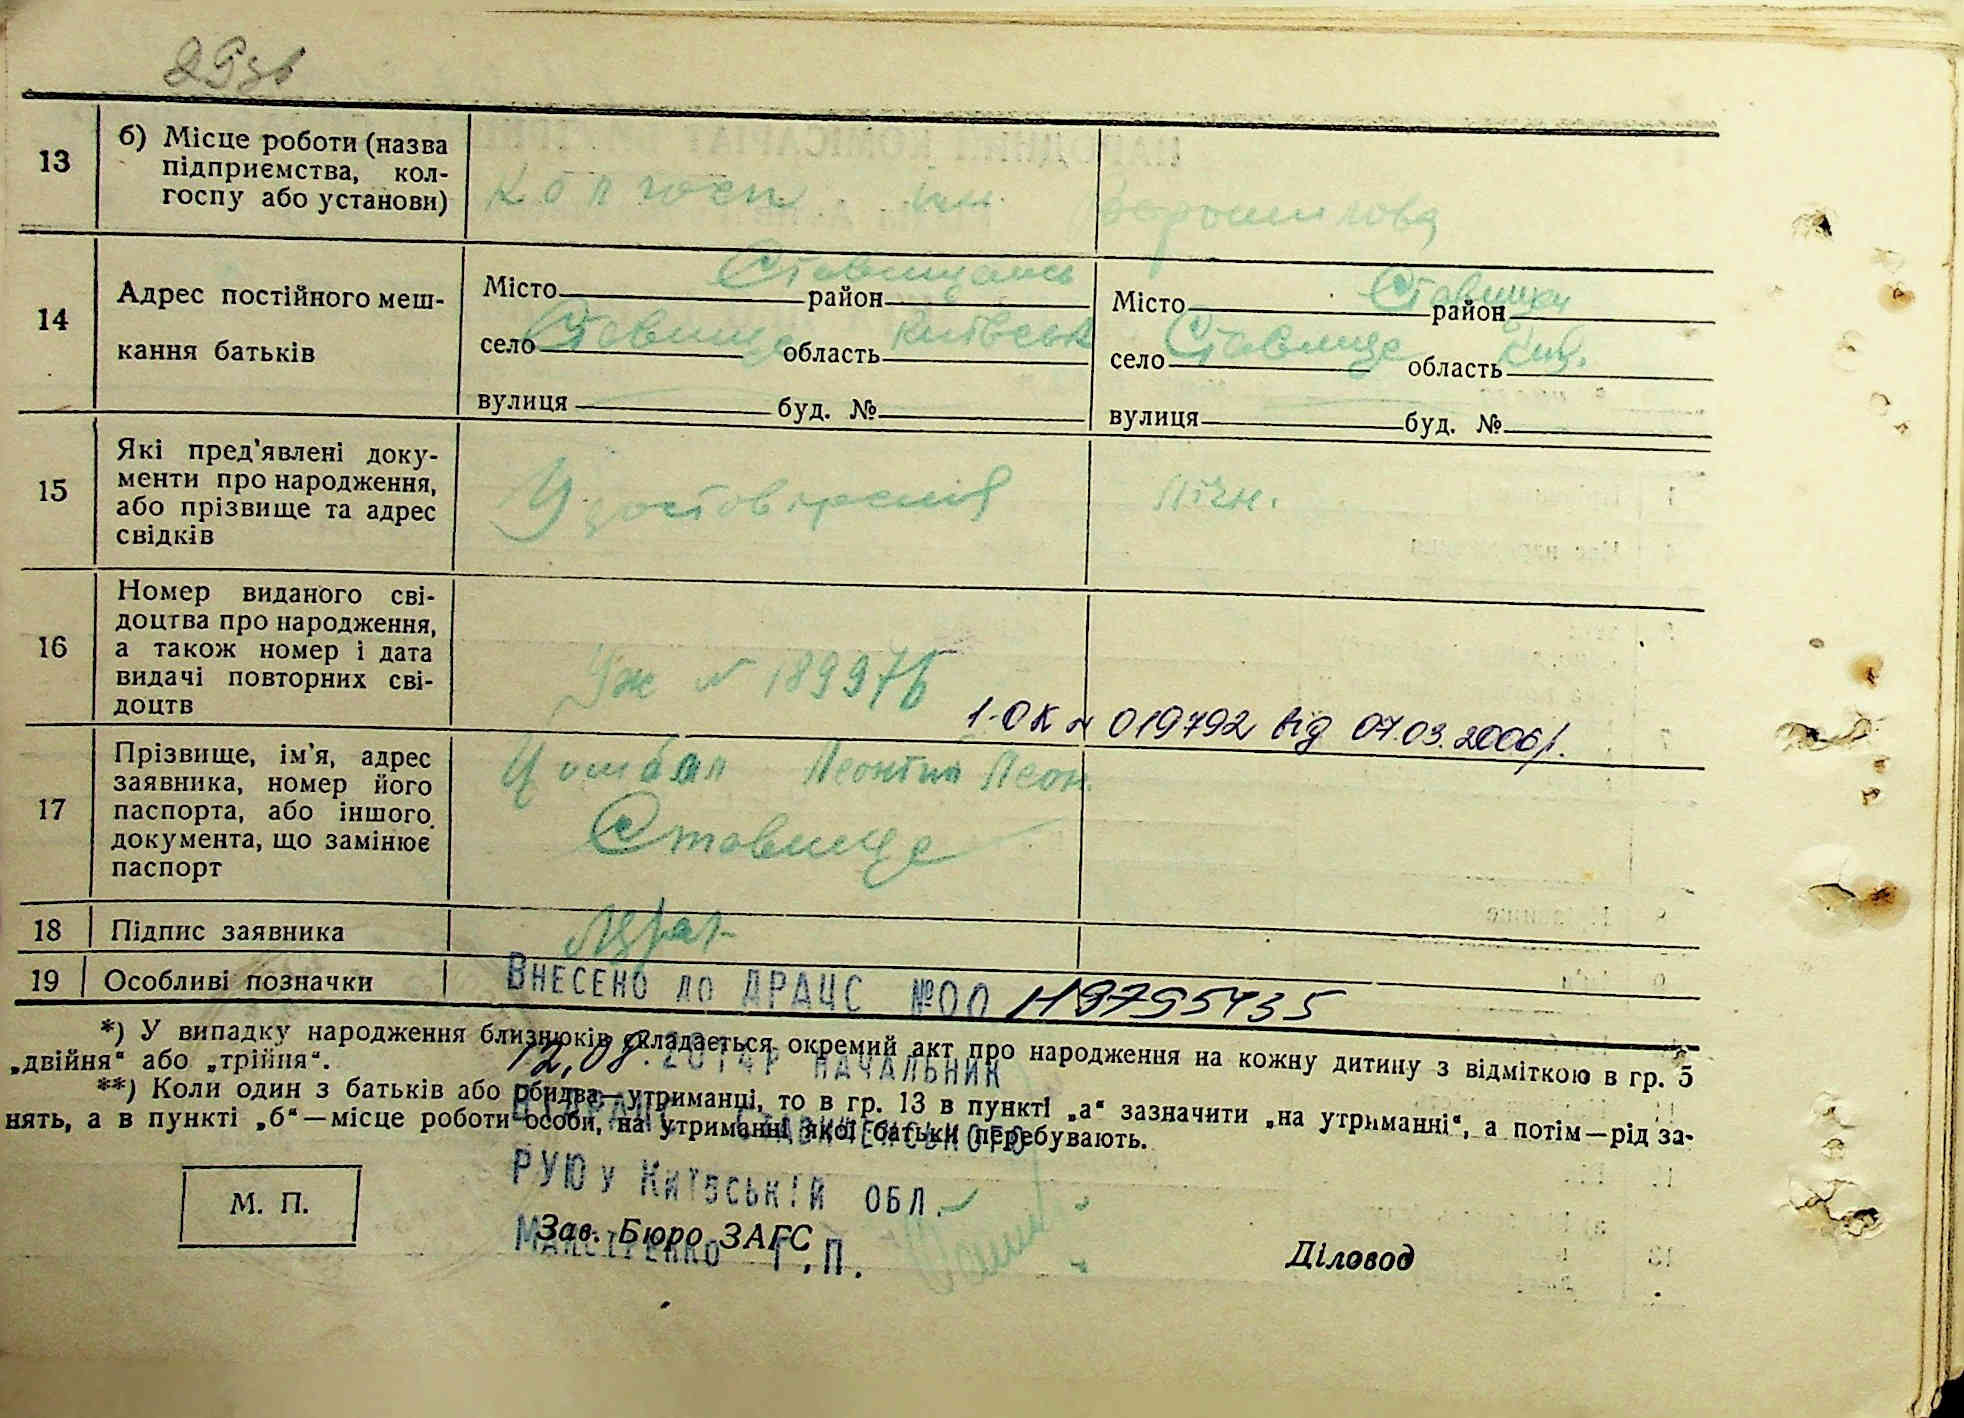 29зв
13
б) Місце роботи (назва
підприємства, кол-
госпу або установи)
Колгосп ім. Ворошилова
14
Адрес постійного меш-
кання батьків
Місто Ставищанськ район
село Ставище область Київськ
вулиця буд. №
Місто район Ставищан
село Ставище область Київ.
вулиця буд. №
15
Які пред'явлені доку-
менти про народження,
або прізвище та адрес
свідків
Удостовірення лічн.
16
Номер виданого сві-
доцтва про народження,
а також номер і дата
видачі повторних сві-
доцтв
Уж № 189976
1-ОК № 019792 від 07.03.2006р.
17
Прізвище, ім'я, адрес
заявника, номер його
паспорта, або іншого
документа, що замінює
паспорт
Леонтій Леон.
Ставище
18
Підпис заявника
19
Особливі позначки
Внесено до ДРАЦС №00119795435
*) У випадку народження близнюків складається окремий акт про народження на кожну дитину з відміткою в гр. 5
„двійня“ або „трійня“.
12,08.2014р начальник
**) Коли один з батьків або обидва—утриманці, то в гр. 13 в пункті „а“ зазначити „на утриманні“, а потім—рід за-
нять, а в пункті „б“—місце роботи особи, на утриманні якої батьки перебувають.
Ставищенського
РУЮ у Київській обл.
М. П.
Зав. Бюро ЗАГС
Г.П.
Діловод